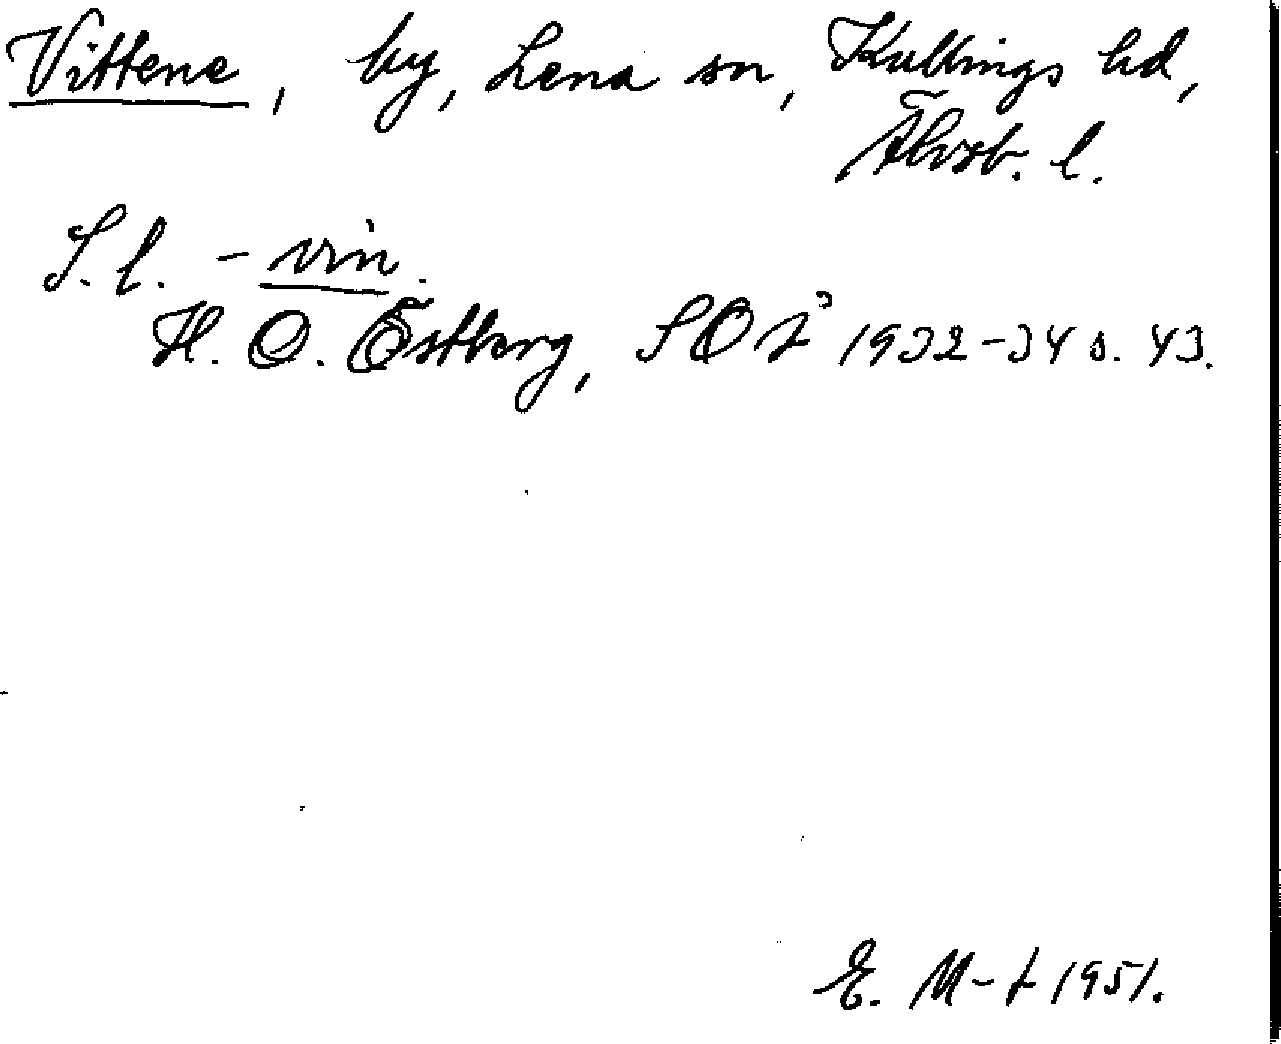 Vittene, by, Lena sn, Kullings hd,
Älvsb. l.
S. l. - vin.
H. O. Östberg, SOÅ 1932-34 s. 43.
E. M-t 1951.